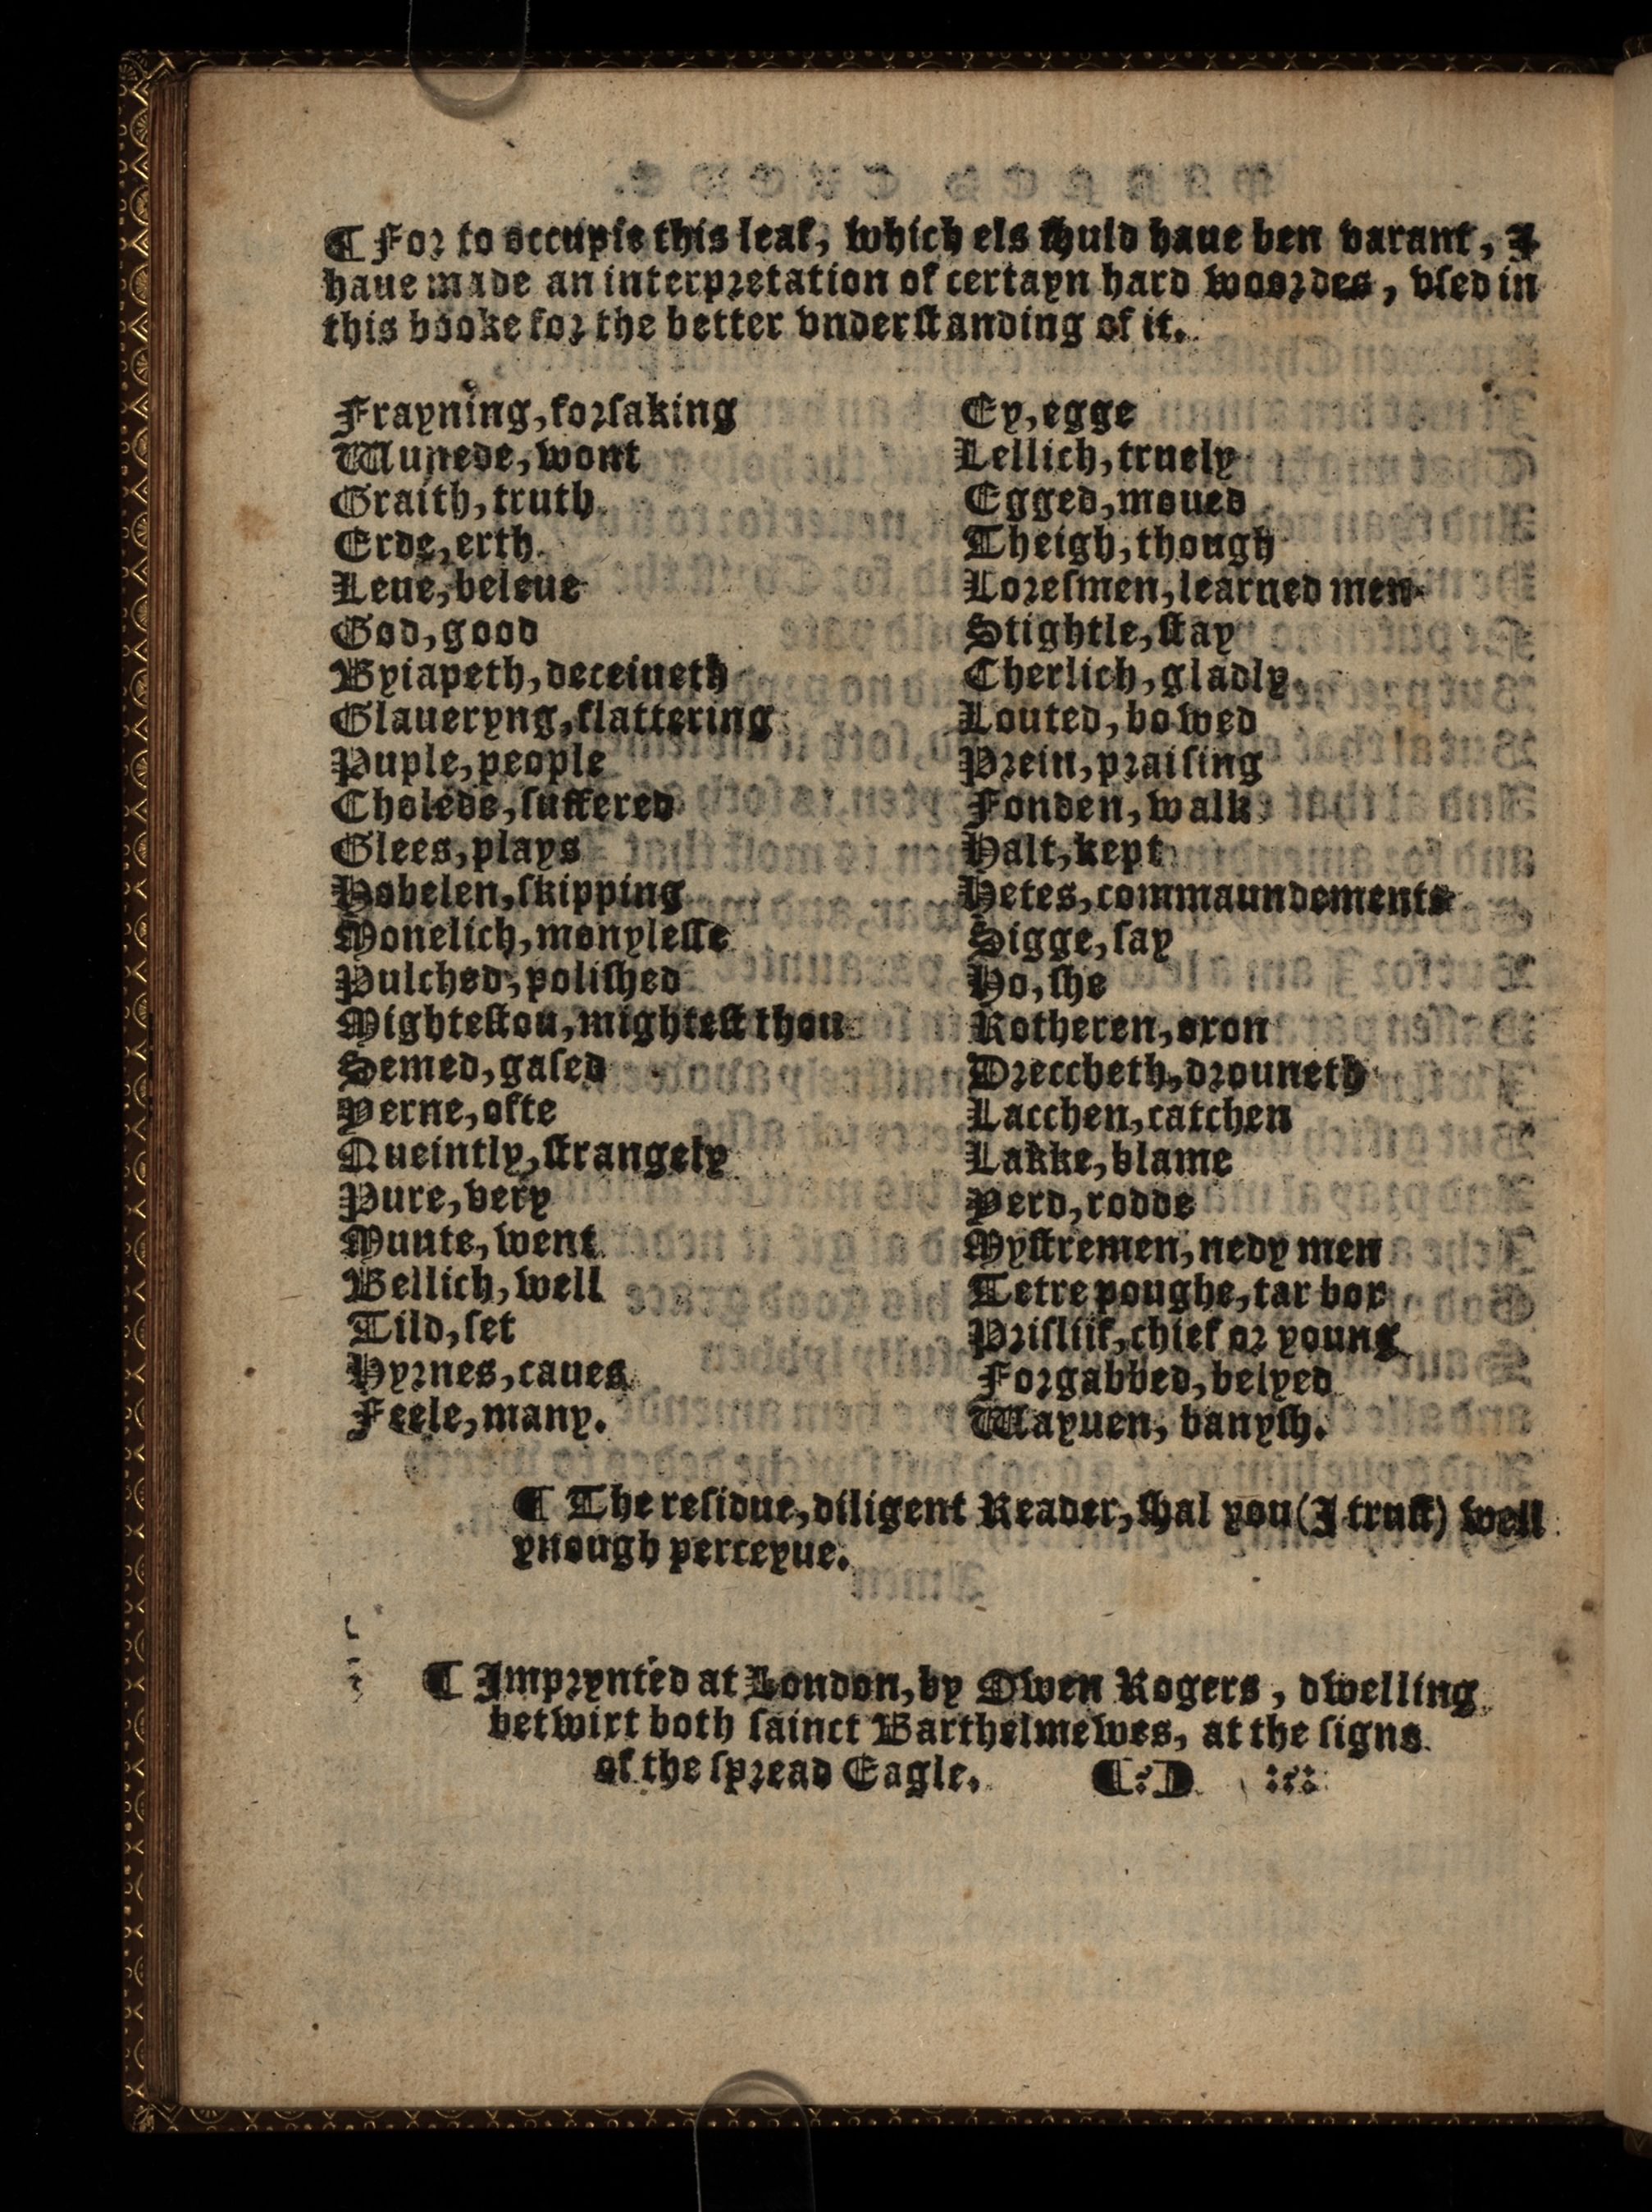 ¶ For to occupie this leaf, which els ſhuld haue ben vacant, I
haue made an interpretation of certayn hard woordes, vſed in
this booke for the better vnderſtanding of it.
Frayning, forſaking
Wunede, wont
Graith, truth
Erde, erth.
Leue, beleue
God, good
Byiapeth, deceiueth
Glaueryng, flattering
Puple, people
Tholede, ſuffered
Glees, plays
Hobelen, ſkipping
Monelich, monyleſſe
Pulched, poliſhed
Mighteſtou, mighteſt thou
Semed, gaſed
Yerne, ofte
Queintly, ſtrangely
Pure, very
Munte, went
Bellich, well
Tild, ſet
Hyrnes, caues
Feele, many.
Ey, egge
Lellich, truely
Egged, moued
Theigh, though
Loreſmen, learned men
Stightle, ſtay
Cherlich, gladly
Louted, bowed
Prein, praiſing
Fonden, walk
Halt, kept
Hetes, commaundements
Sigge, ſay
Ho, ſhe
Rotheren, oxon
Dreccheth, drouneth
Lacchen, catchen
Lakke, blame
Yerd, rodde
Myſtremen, nedy men
Tetre poughe, tar box
Priſliik, chief or young
Forgabbed, belyed
Wayuen, vanyſh.
¶ The reſidue, diligent Reader, ſhal you (I truſt) well
ynough perceyue.
¶ Imprynted at London, by Owen Rogers, dwelling
betwixt both ſainct Barthelmewes, at the ſigne
of the ſpread Eagle.